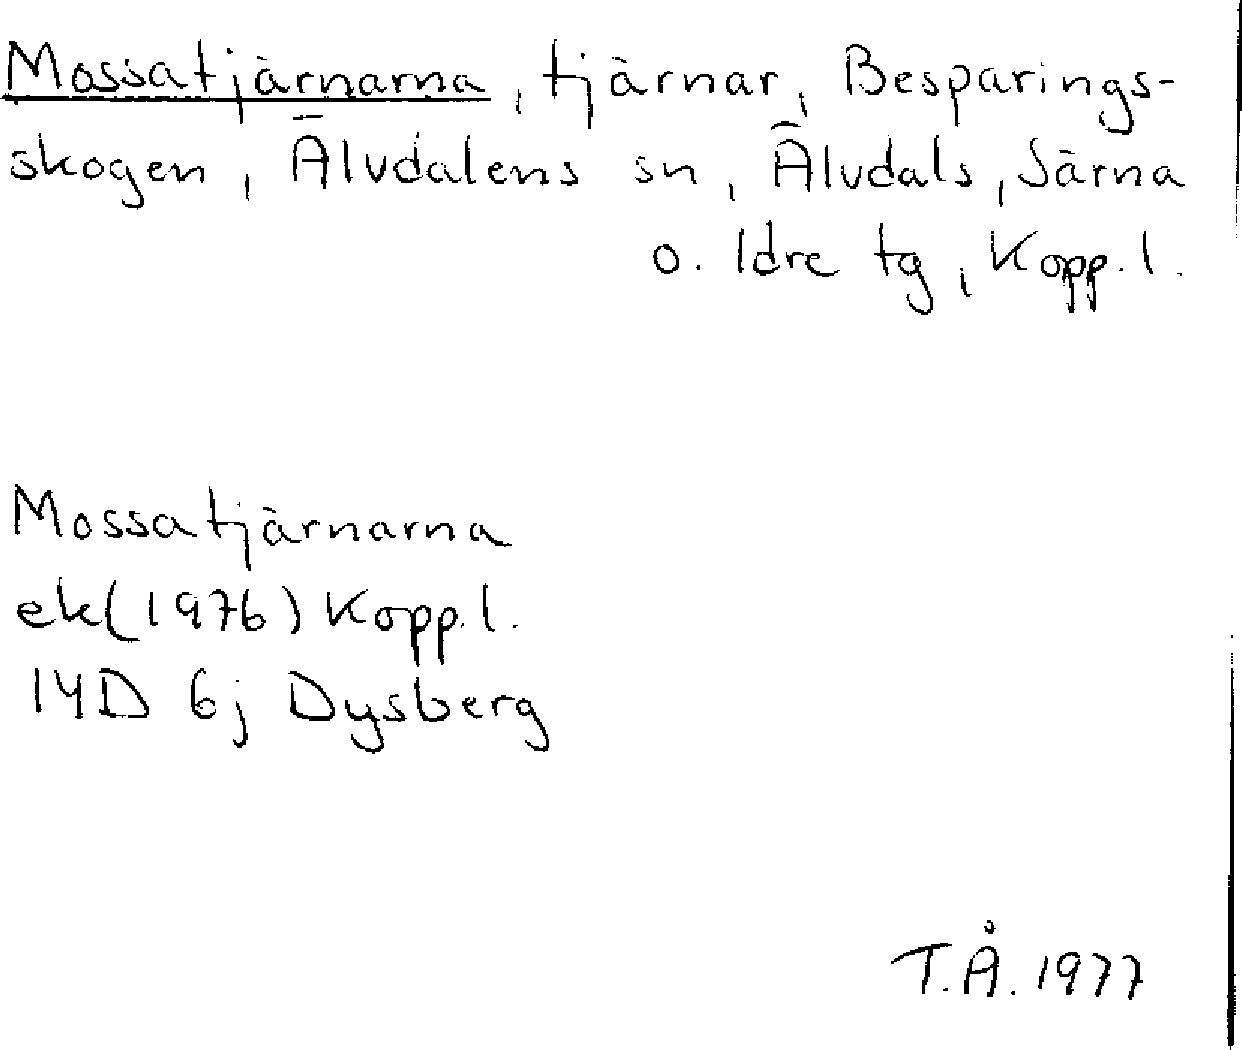 Mossatjärnarna, tjärnar, Besparings-
skogen, Älvdalens sn, Älvdals, Särna
o. Idre tg, Kopp. l.
Mossatjärnarna
ek (1976) Kopp. l.
14D 6j Dysberg
T.Å. 1977